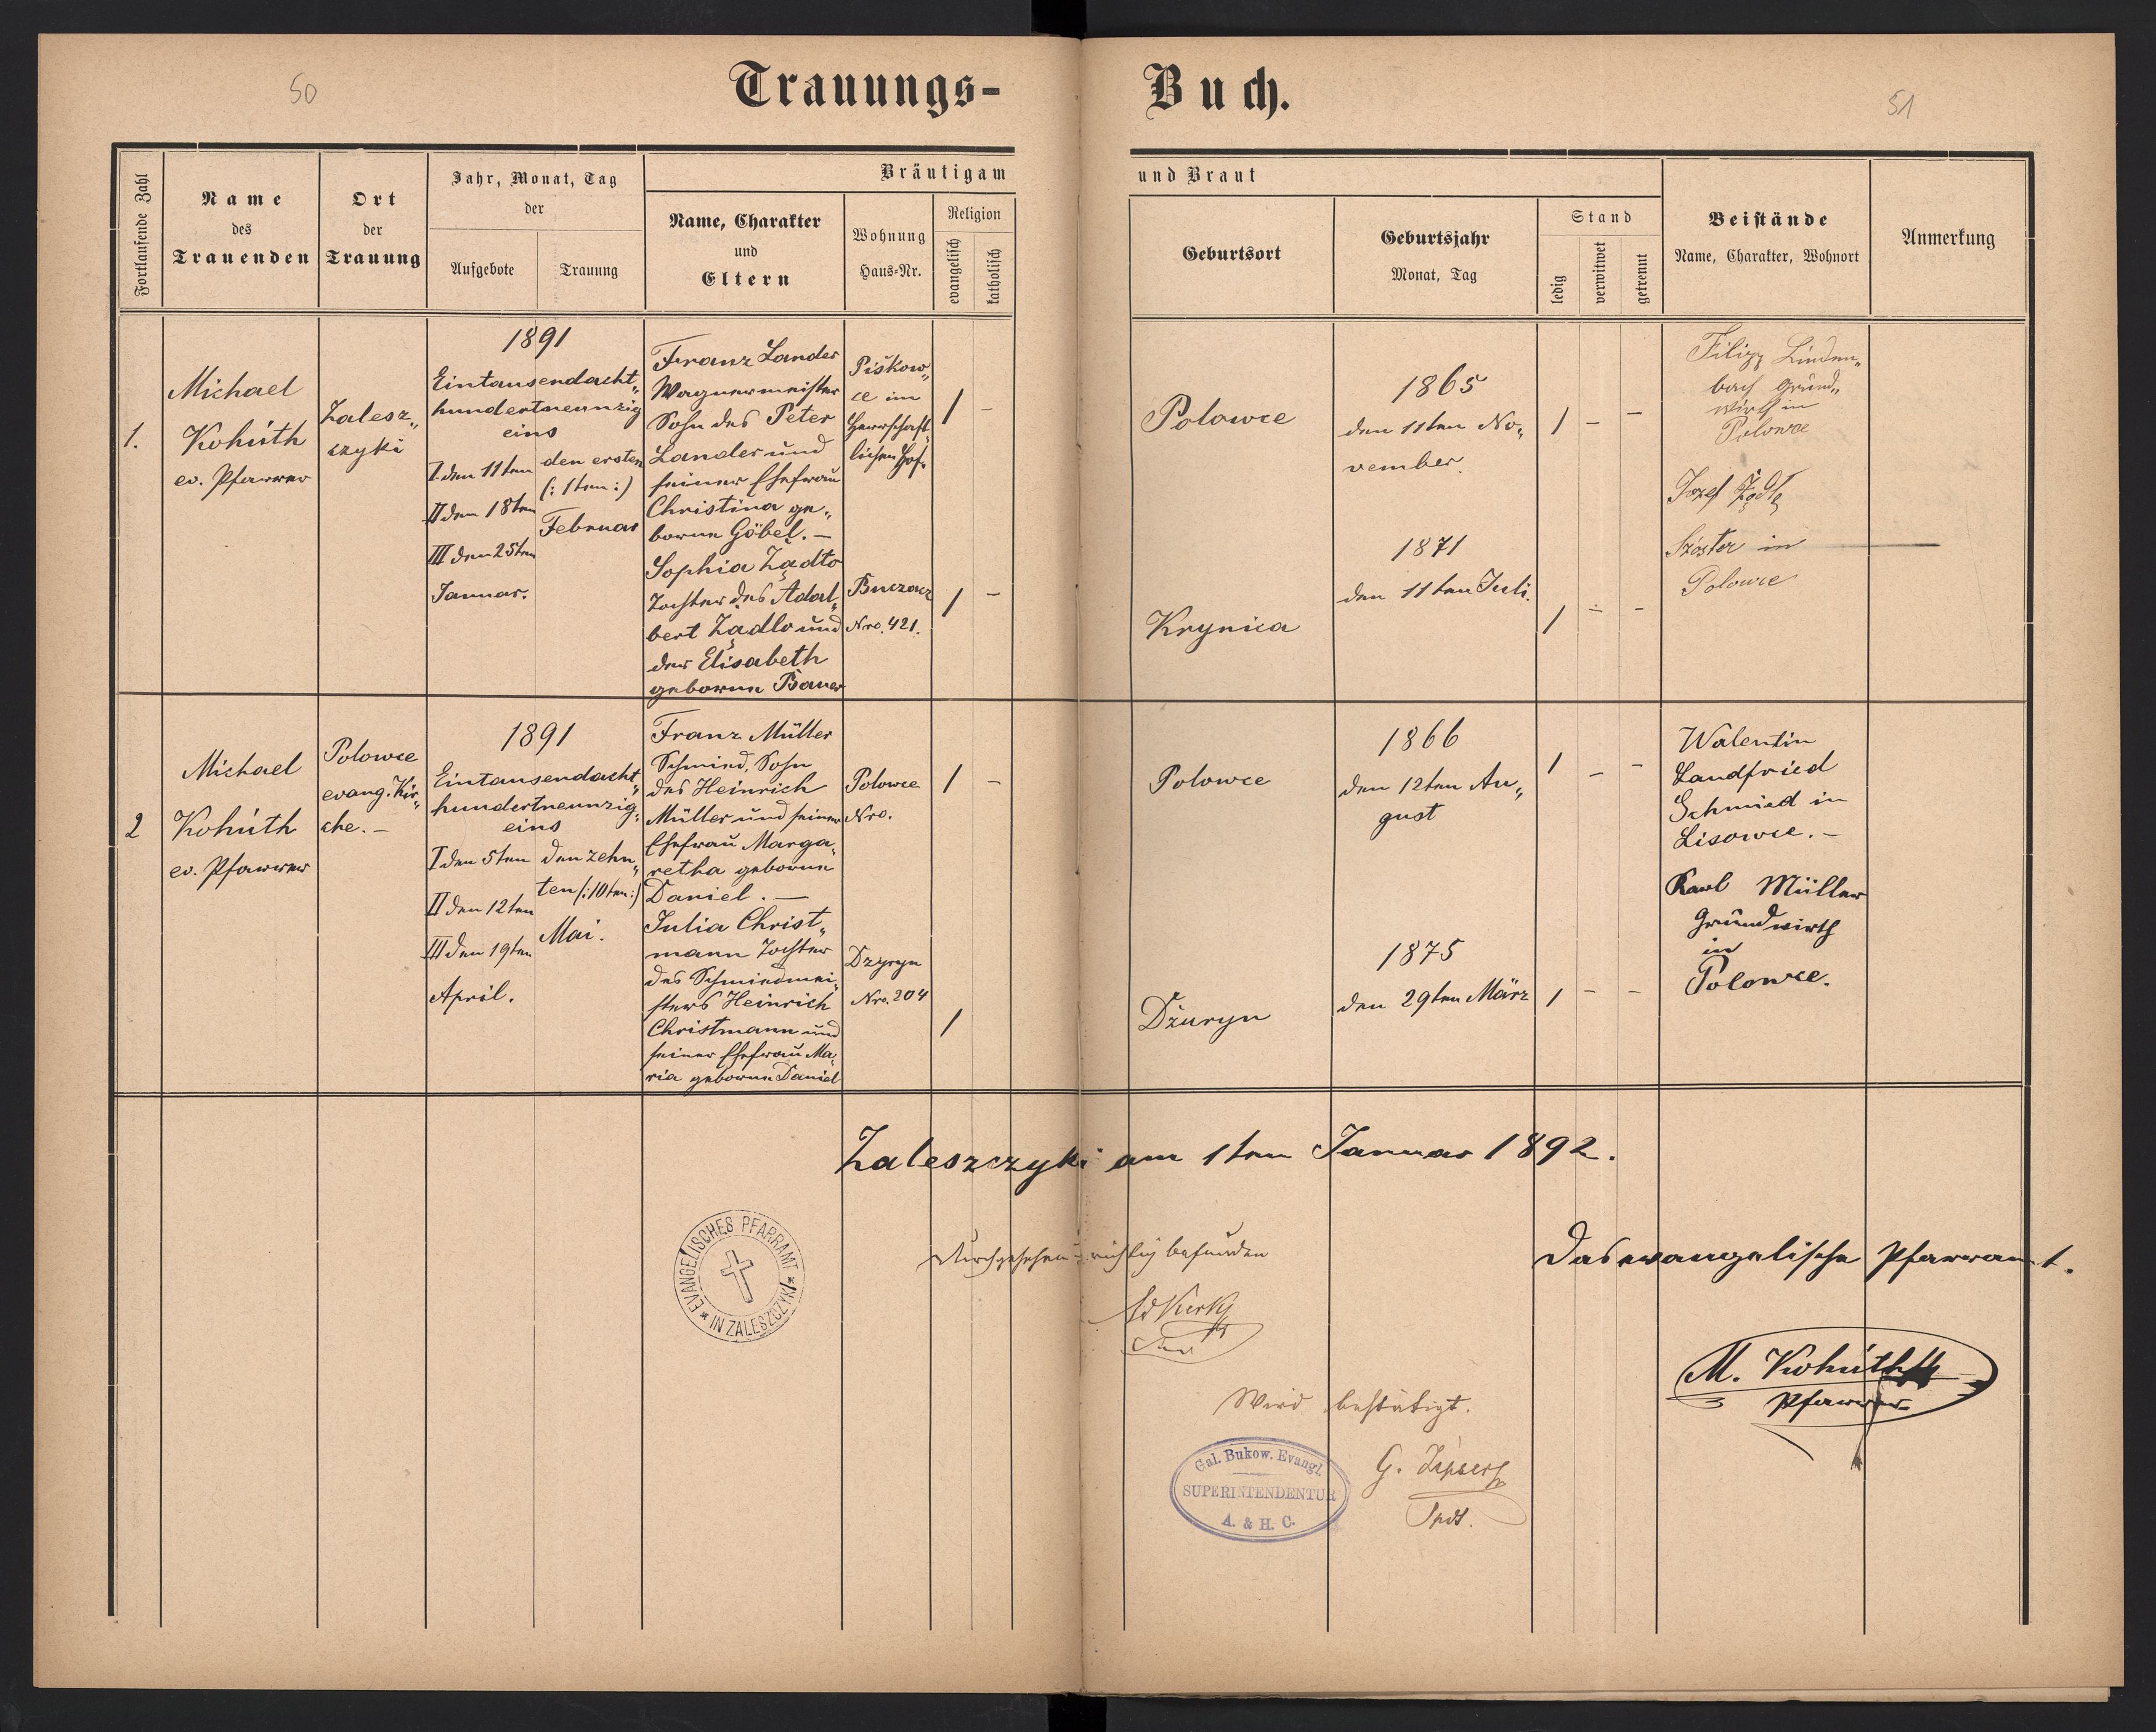 50
Trauungs-
Buch.
51
Fortlaufende Zahl
Name
des
Trauenden
Ort
der
Trauung
Jahr, Monat, Tag
der
Aufgebote
Trauung
Bräutigam
und Braut
Name, Charakter
und
Eltern
Wohnung
Haus-Nr.
Religion
evangelisch
katholisch
Geburtsort
Geburtsjahr
Monat, Tag
Stand
ledig
verwitwet
getrennt
Beistände
Name, Charakter, Wohnort
Anmerkung
1.
Michael
Kohúth
ev. Pfarrer
Zalesz„
czyki
1891
Eintausendacht„
hundertneunzig
eins
I den 11ten
II den 18ten
III den 25ten
Januar.
den ersten
(: 1ten :)
Februar
Franz Lander
Wagnermeister
Sohn des Peter
Lander und
seiner Ehefrau
Christina ge„
borne Göbel. —
Sophia Żądło
Tochter des Adal„
bert Żądło und
der Elisabeth
geborne Bauer
Piškow„
ce im
Herrschaft„
lichen Hof.
Buczacz
Nro. 421.
1 –
1 –
Polowce
Krynica
1865
den 11ten No„
vember.
1871
den 11ten Juli.
1 – –
1 – –
Filipp Linden„
bach Grund„
wirth in
Polowce
Józef
in
Polowce
2
Michael
Kohúth
ev. Pfarrer
Polowce
evang. Kir„
che. –
1891
Eintausendacht„
hundertneunzig„
eins
I den 5ten
II den 12ten
III den 19ten
April.
den zehn„
ten (: 10ten :)
Mai.
Franz Müller
Schmied, Sohn
des Heinrich
Müller und seiner
Ehefrau Marga„
retha geborne
Daniel. —
Julia Christ„
mann Tochter
des Schmiedmei„
sters Heinrich
Christmann und
seiner Ehefrau Ma„
ria geborne Daniel
Polowce
Nro.
Dzyryn
Nro. 204
1 –
1
Polowce
Džuryn
1866
den 12ten Au„
gust
1875
den 29ten März
1 – –
1 – –
Walentin
Landfried
Schmied in
Lisowce. –
Karl Müller
Grundwirth
in
Polowce.
Zaleszczyki am 1ten Januar 1892.
EVANGELISCHES PFARRAMT
* IN ZALESZCZYKI *
Durchgesehen u. richtig befunden
Das evangelische Pfarramt.
M. Kohúth
Pfarrer
Wird bestätigt.
Gal. Bukow. Evangl.
SUPERINTENDENTUR
A. & H. C.